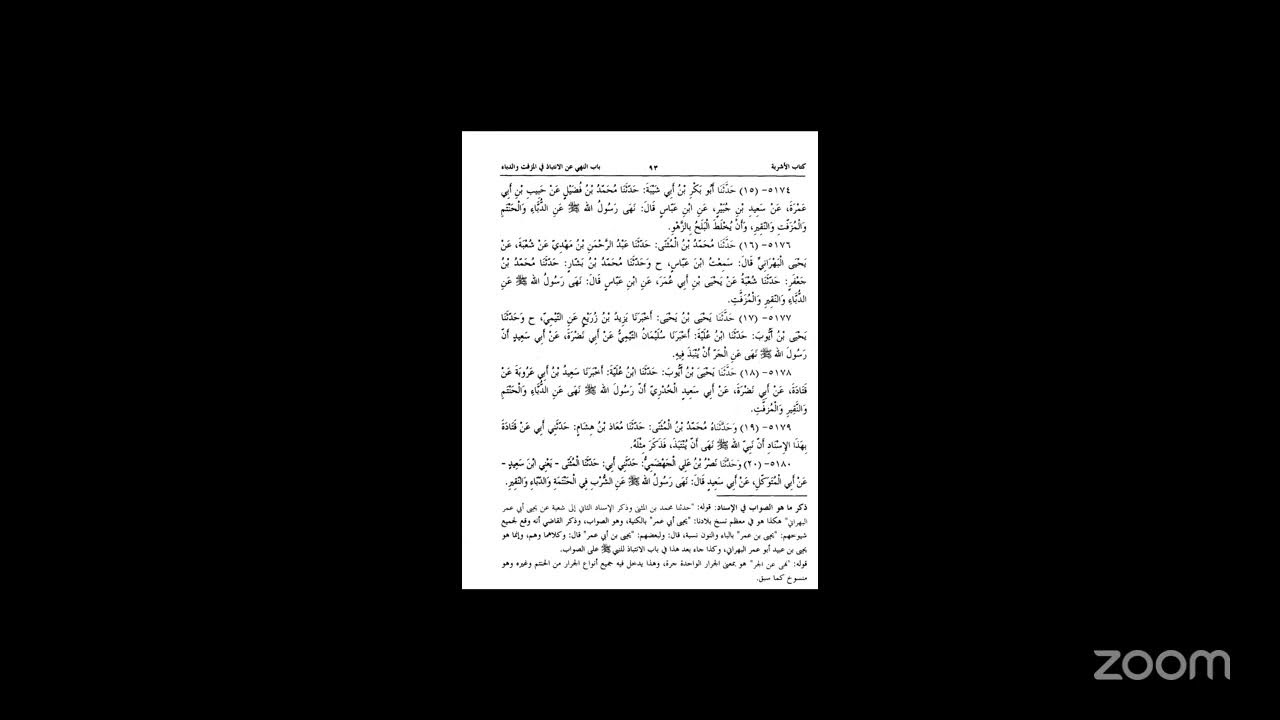 كتاب الأشربة ٩٣ باب النهي عن الانتباذ في المزفت والدباء
٥١٧٤- (١٥) حَدَّثَنَا أَبُو بَكْرِ بْنُ أَبِي شَيْبَةَ: حَدَّثَنَا مُحَمَّدُ بْنُ فُضَيْلٍ عَنْ حَبِيبِ بْنِ أَبِي
عَمْرَةَ، عَنْ سَعِيدِ بْنِ جُبَيْرٍ، عَنِ ابْنِ عَبَّاسٍ قَالَ: نَهَى رَسُولُ الله ﷺ عَنِ الدُّبَّاءِ وَالْحَنْتَمِ
وَالْمُزَفَّتِ وَالنَّقِيرِ، وَأَنْ يُخْلَطَ الْبَلَحُ بِالزَّهْوِ.
٥١٧٦- (١٦) حَدَّثَنَا مُحَمَّدُ بْنُ الْمُثَنَّى: حَدَّثَنَا عَبْدُ الرَّحْمَنِ بْنُ مَهْدِيّ عَنْ شُعْبَةَ، عَنْ
يَحْيَى الْبَهْرَانِيِّ قَالَ: سَمِعْتُ ابْنَ عَبَّاسٍ، ح وَحَدَّثَنَا مُحَمَّدُ بْنُ بَشَّارٍ: حَدَّثَنَا مُحَمَّدُ بْنُ
جَعْفَرٍ: حَدَّثَنَا شُعْبَةُ عَنْ يَحْيَى بْنِ أَبِي عُمَرَ، عَنِ ابْنِ عَبَّاسٍ قَالَ: نَهَى رَسُولُ الله ﷺ عَنِ
الدُّبَّاءِ وَالنَّقِيرِ وَالْمُزَفَّتِ.
٥١٧٧- (١٧) حَدَّثَنَا يَحْيَى بْنُ يَحْيَى: أَخْبَرَنَا يَزِيدُ بْنُ زُرَيْعٍ عَنِ التَّيْمِيِّ، ح وَحَدَّثَنَا
يَحْيَى بْنُ أَيُّوبَ: حَدَّثَنَا ابْنُ عُلَيَّةَ: أَخْبَرَنَا سُلَيْمَانُ التَّيْمِيُّ عَنْ أَبِي نَضْرَةَ، عَنْ أَبِي سَعِيدٍ أَنّ
رَسُولَ الله ﷺ نَهَى عَنِ الْجَرِّ أَنْ يُنْبَذَ فِيهِ.
٥١٧٨- (١٨) حَدَّثَنَا يَحْيَىَ بْنُ أَيُّوبَ: حَدَّثَنَا ابْنُ عُلَيَّةَ: أَخْبَرَنَا سَعِيدُ بْنُ أَبِي عَرُوبَةَ عَنْ
قَتَادَةَ، عَنْ أَبِي نَضْرَةَ، عَنْ أَبِي سَعِيدٍ الْخُدْرِيِّ أَنّ رَسُولَ الله ﷺ نَهَى عَنِ الدُّبَّاءِ وَالْحَنْتَمِ
وَالنَّقِيرِ وَالْمُزَفَّتِ.
٥١٧٩- (١٩) وَحَدَّثَنَاهُ مُحَمَّدُ بْنُ الْمُثَنَّى: حَدَّثَنَا مُعَاذ بْنُ هِشَامٍ: حَدَّثَنِي أَبِي عَنْ قَتَادَةَ
بِهَذَا الإِسْنَادِ أَنّ نَبِيّ الله ﷺ نَهَى أَنْ يُنْتَبَذَ، فَذَكَرَ مِثْلَهُ.
٥١٨٠- (٢٠) وَحَدَّثَنَا نَصْرُ بْنُ عَلِي الْجَهْضَمِيُّ: حَدَّثَنِي أَبِي: حَدَّثَنَا الْمُثَنَّى - يَعْنِي ابْنَ سَعِيدٍ -
عَنْ أَبِي الْمُتَوَكِّلِ، عَنْ أَبِي سَعِيدٍ قَالَ: نَهَى رَسُولُ الله ﷺ عَنِ الشُّرْبِ فِي الْحَنْتَمَةِ وَالدُّبَّاءِ وَالنَّقِيرِ.
ذكر ما هو الصواب في الإسناد: قوله: "حدثنا محمد بن المثنى وذكر الإسناد الثاني إلى شعبة عن يحيى أبي عمر
البهراني" هكذا هو في معظم نسخ بلادنا: "يحيى أبي عمر" بالكنية، وهو الصواب، وذكر القاضي أنه وقع لجميع
شيوخهم: "يحيى بن عمر" بالباء والنون نسبة، قال: ولبعضهم: "يحيى بن أبي عمر" قال: وكلاهما وهم، وإنما هو
يحيى بن عبيد أبو عمر البهراني، وكذا جاء بعد هذا في باب الانتباذ للنبي ﷺ على الصواب.
قوله: "نهى عن الجر" هو بمعنى الجرار الواحدة جرة، وهذا يدخل فيه جميع أنواع الجرار من الحنتم وغيره وهو
منسوخ كما سبق.
zoom